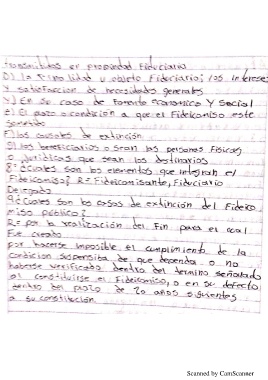 transmitidos en propiedad Fiduciario
D) la Finalidad u objeto Fideciario; los Intereses
y satisfaccion de necesidades generales
y) En su caso de Fomento Economico Y Social
E) El plazo o condición a que el Fideicomiso este
F) los causales de extinción
G) los beneficiarios o sean las personas Fisicas
o juridicas que sean los destinarios
8° ¿Cuales son los elementos que integran el
Fideicomiso? R= Fideicomisante, Fiduciario
Delegado
9¿Cuales son los casos de extinción del Fideico
miso público?
R= por la realización del Fin para el cual
Fue creado
por hacerse imposible el cumplimiento de la
condicion suspensiba de que dependa o no
haberse verificado dentro del termino señalado
al constituirse el Fideicomiso, o en su defecto
dentro del plazo de 20 años siguientes
a su constitución
Scanned by CamScanner